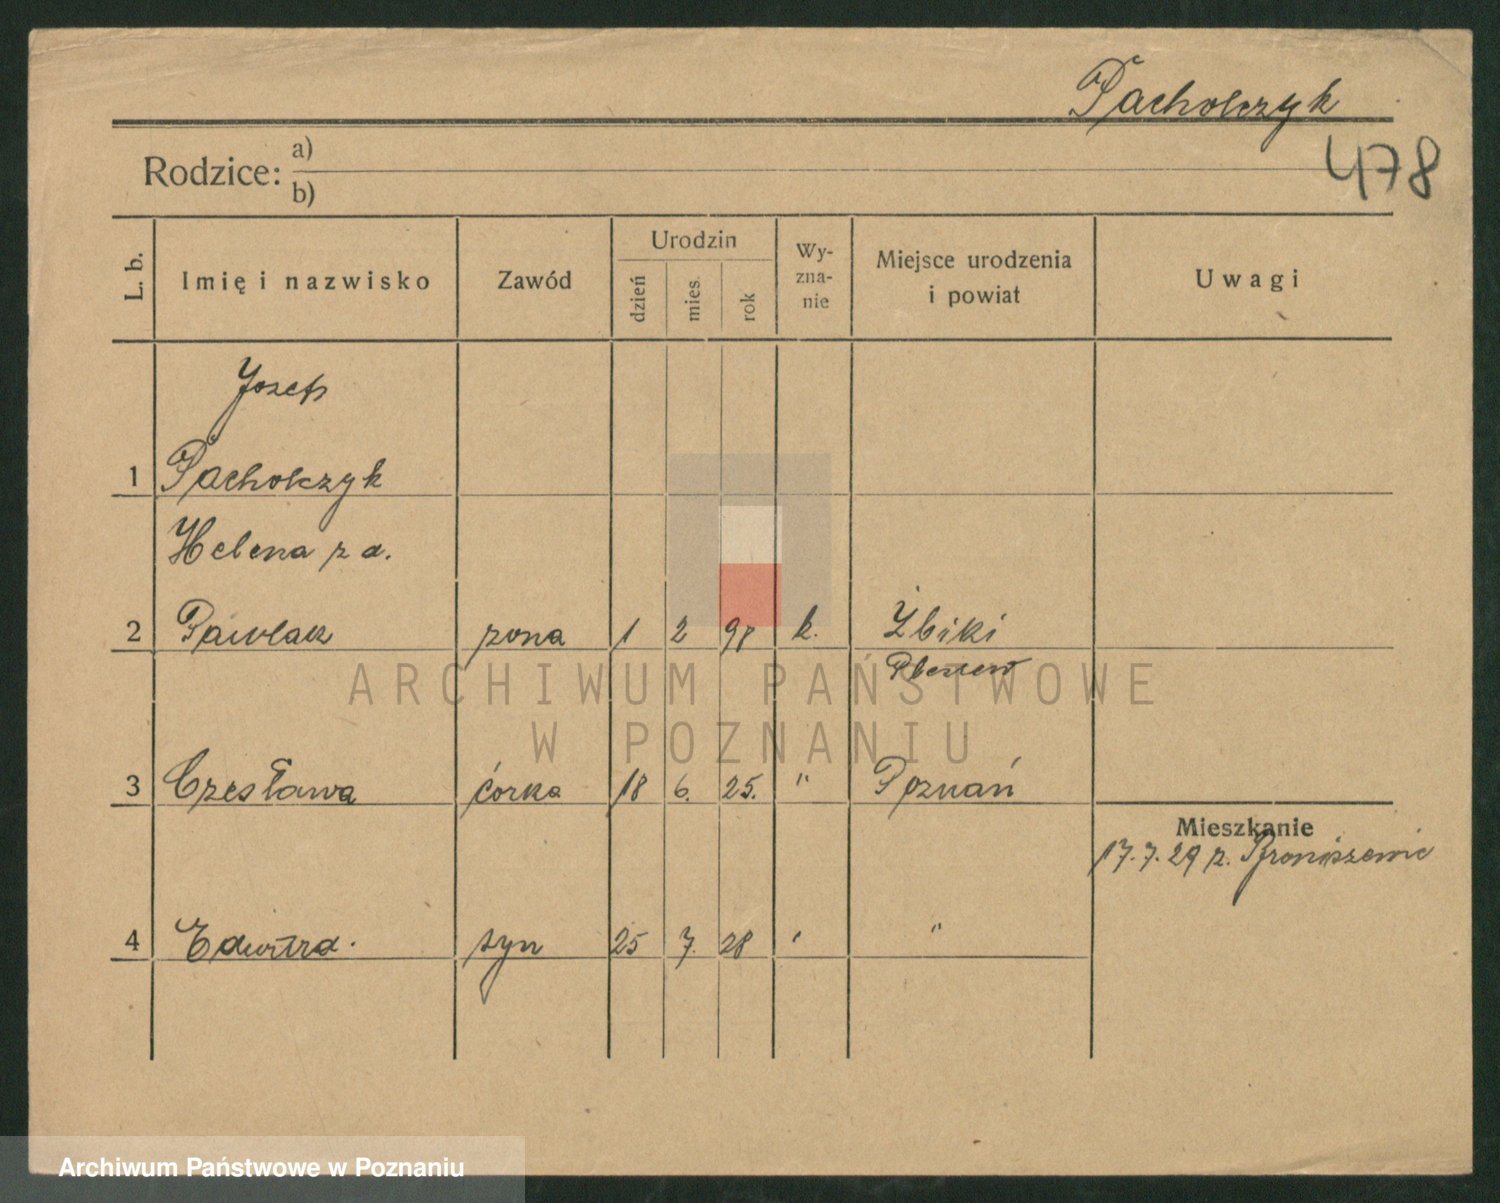 Pacholczyk
478
Rodzice: a)
b)
L. b.
Imię i nazwisko
Zawód
Urodzin
dzień
mies.
rok
Wy-
zna-
nie
Miejsce urodzenia
i powiat
Uwagi
Jozef
1 Pacholczyk
Helena z d.
2 Pawlak żona 1 2 98 k. Żbiki
Pleszew
3 Czesława córka 18 6. 25. " Poznań
Mieszkanie
17.7.29 z. Broniszewic
4 Edward. syn 25 7. 28 " "
ARCHIWUM PAŃSTWOWE
W POZNANIU
Archiwum Państwowe w Poznaniu